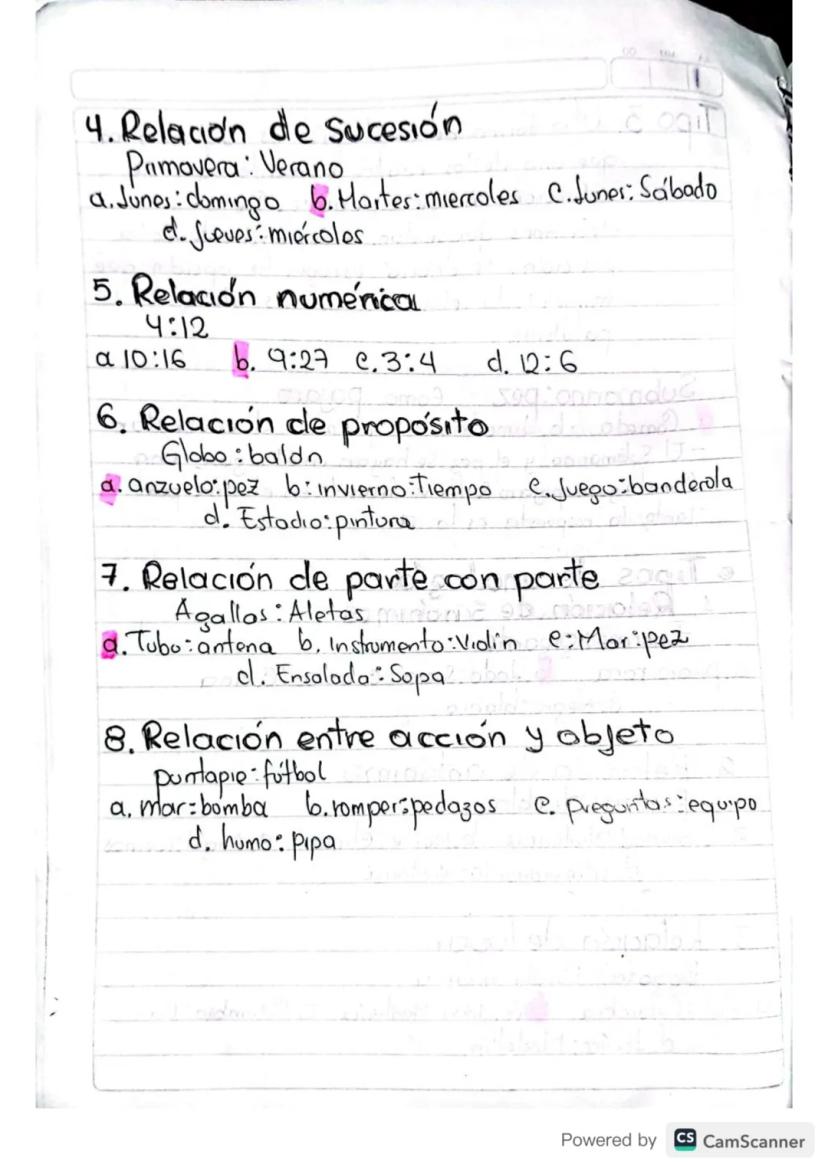 4. Relación de sucesión
Primavera: Verano
a. lunes: domingo b. Martes: miercoles c. lunes: Sábado
d. jueves: miércoles
5. Relación numérica
4:12
a 10:16 b. 9:27 c. 3:4 d. 12:6
6. Relación de propósito
Globo: balón
a. anzuelo: pez b: invierno: Tiempo c. Juego: banderola
d. Estadio: pintura
7. Relación de parte con parte
Agallas: Aletas
a. Tubo: antena b. Instrumento: Violín c: Mar: pez
d. Ensalada: Sopa
8. Relación entre acción y objeto
puntapie: fútbol
a. mar: bomba b. romper: pedazos c. preguntas: equipo
d. humo: pipa
Powered by CS CamScanner